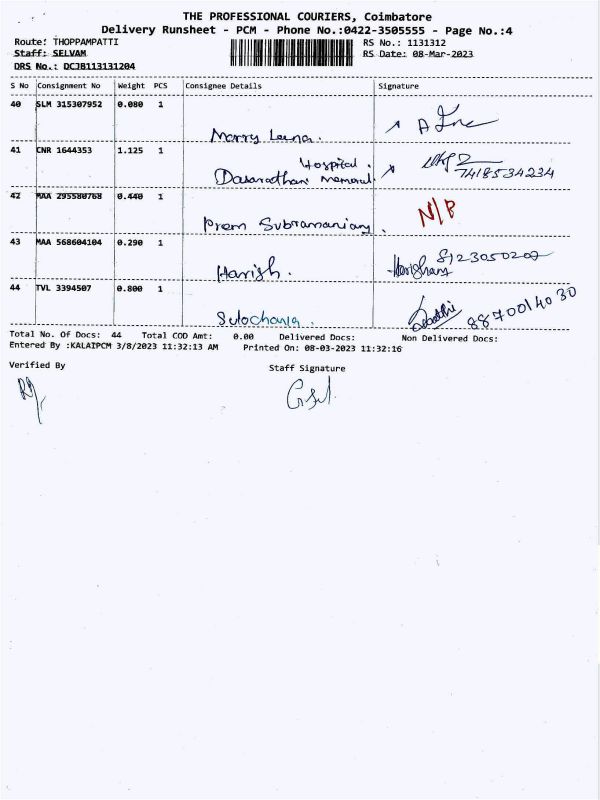 THE PROFESSIONAL COURIERS, Coimbatore
Delivery Runsheet - PCM - Phone No.:0422-3505555 - Page No.:4
Route: THOPPAMPATTI RS No.: 1131312
Staff: SELVAM RS Date: 08-Mar-2023
DRS No.: DCJB113131204
S No Consignment No Weight PCS Consignee Details Signature
40 SLM 315307952 0.080 1
Marry Leena.
41 CNR 1644353 1.125 1
Hospital.
Dasarathan Memorial. 7418534234
42 MAA 295580768 0.440 1
N/B
Prem Subramaniam.
43 MAA 568604104 0.290 1
8123050209
Harish.
44 TVL 3394507 0.800 1
8870014030
Sulochana.
Total No. Of Docs: 44 Total COD Amt: 0.00 Delivered Docs: Non Delivered Docs:
Entered By :KALAIPCM 3/8/2023 11:32:13 AM Printed On: 08-03-2023 11:32:16
Verified By Staff Signature